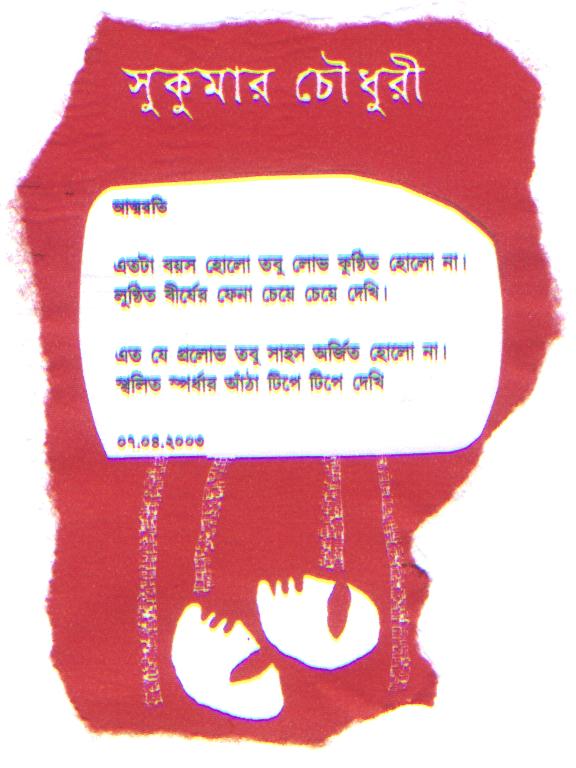 সুকুমার চৌধুরী
আত্মরতি
এতটা বয়স হোলো তবু লোভ কুণ্ঠিত হোলো না।
লুণ্ঠিত বীর্যের ফেনা চেয়ে চেয়ে দেখি।
এত যে প্রলোভ তবু সাহস অর্জিত হোলো না।
স্খলিত স্পর্ধার আঁঠা টিপে টিপে দেখি
০৭.০৪.২০০৩